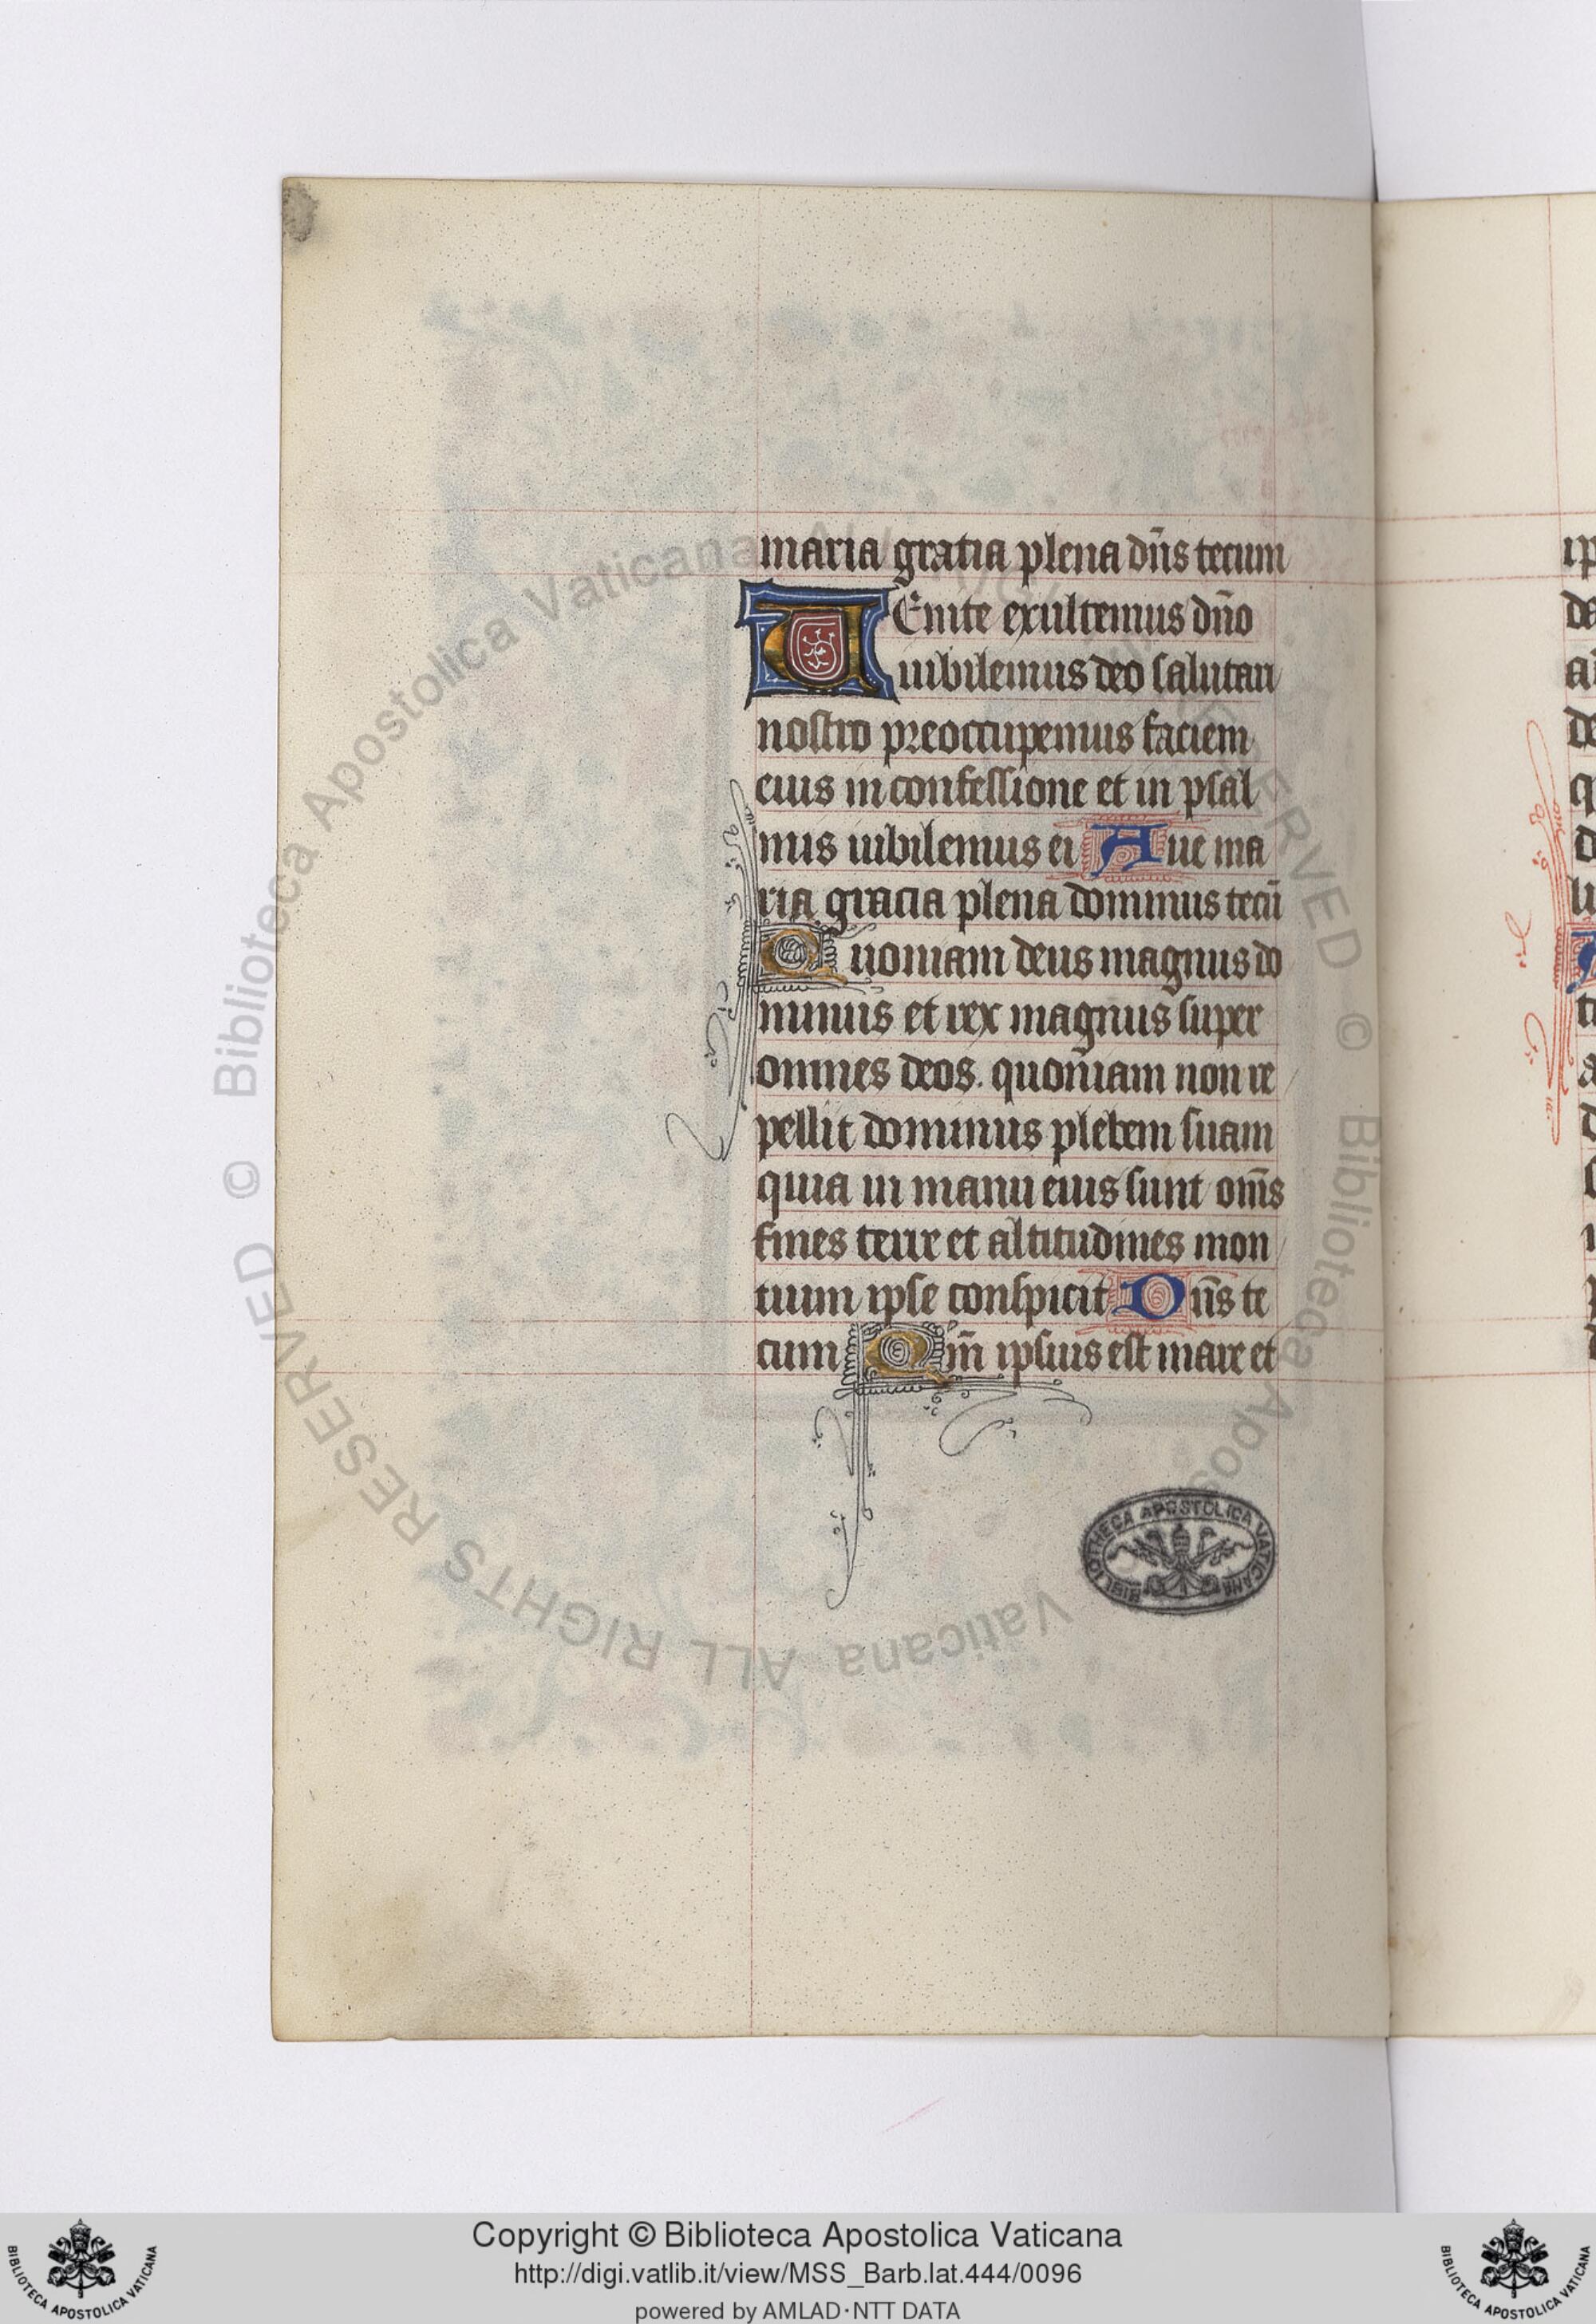 maria gratia plena dñs tecum
UEnite exultemus dño
iubilemus deo salutari
nostro preoccupemus faciem
eius in confessione et in psal
mis iubilemus ei Aue ma
ria gracia plena dominus tecũ
Quoniam deus magnus do
minus et rex magnus super
omnes deos. quoniam non re
pellit dominus plebem suam
quia in manu eius sunt om̃s
fines terre et altitudines mon
tium ipse conspicit Dñs te
cum Qm̃ ipsius est mare et
BIBLIOTHECA APOSTOLICA VATICANA
© Biblioteca Apostolica Vaticana ALL RIGHTS RESERVED © Biblioteca Apostolica Vaticana ALL RIGHTS RESERVED
Copyright © Biblioteca Apostolica Vaticana
http://digi.vatlib.it/view/MSS_Barb.lat.444/0096
powered by AMLAD·NTT DATA
BIBLIOTECA APOSTOLICA VATICANA
BIBLIOTECA APOSTOLICA VATICANA